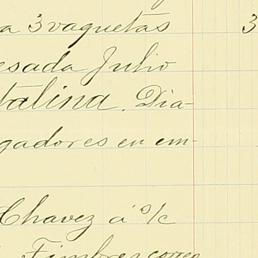 a 3 vaquetas 3
esada Julio
talina. Dia-
gadores en em-
Chavez á o/c
Timbres correo